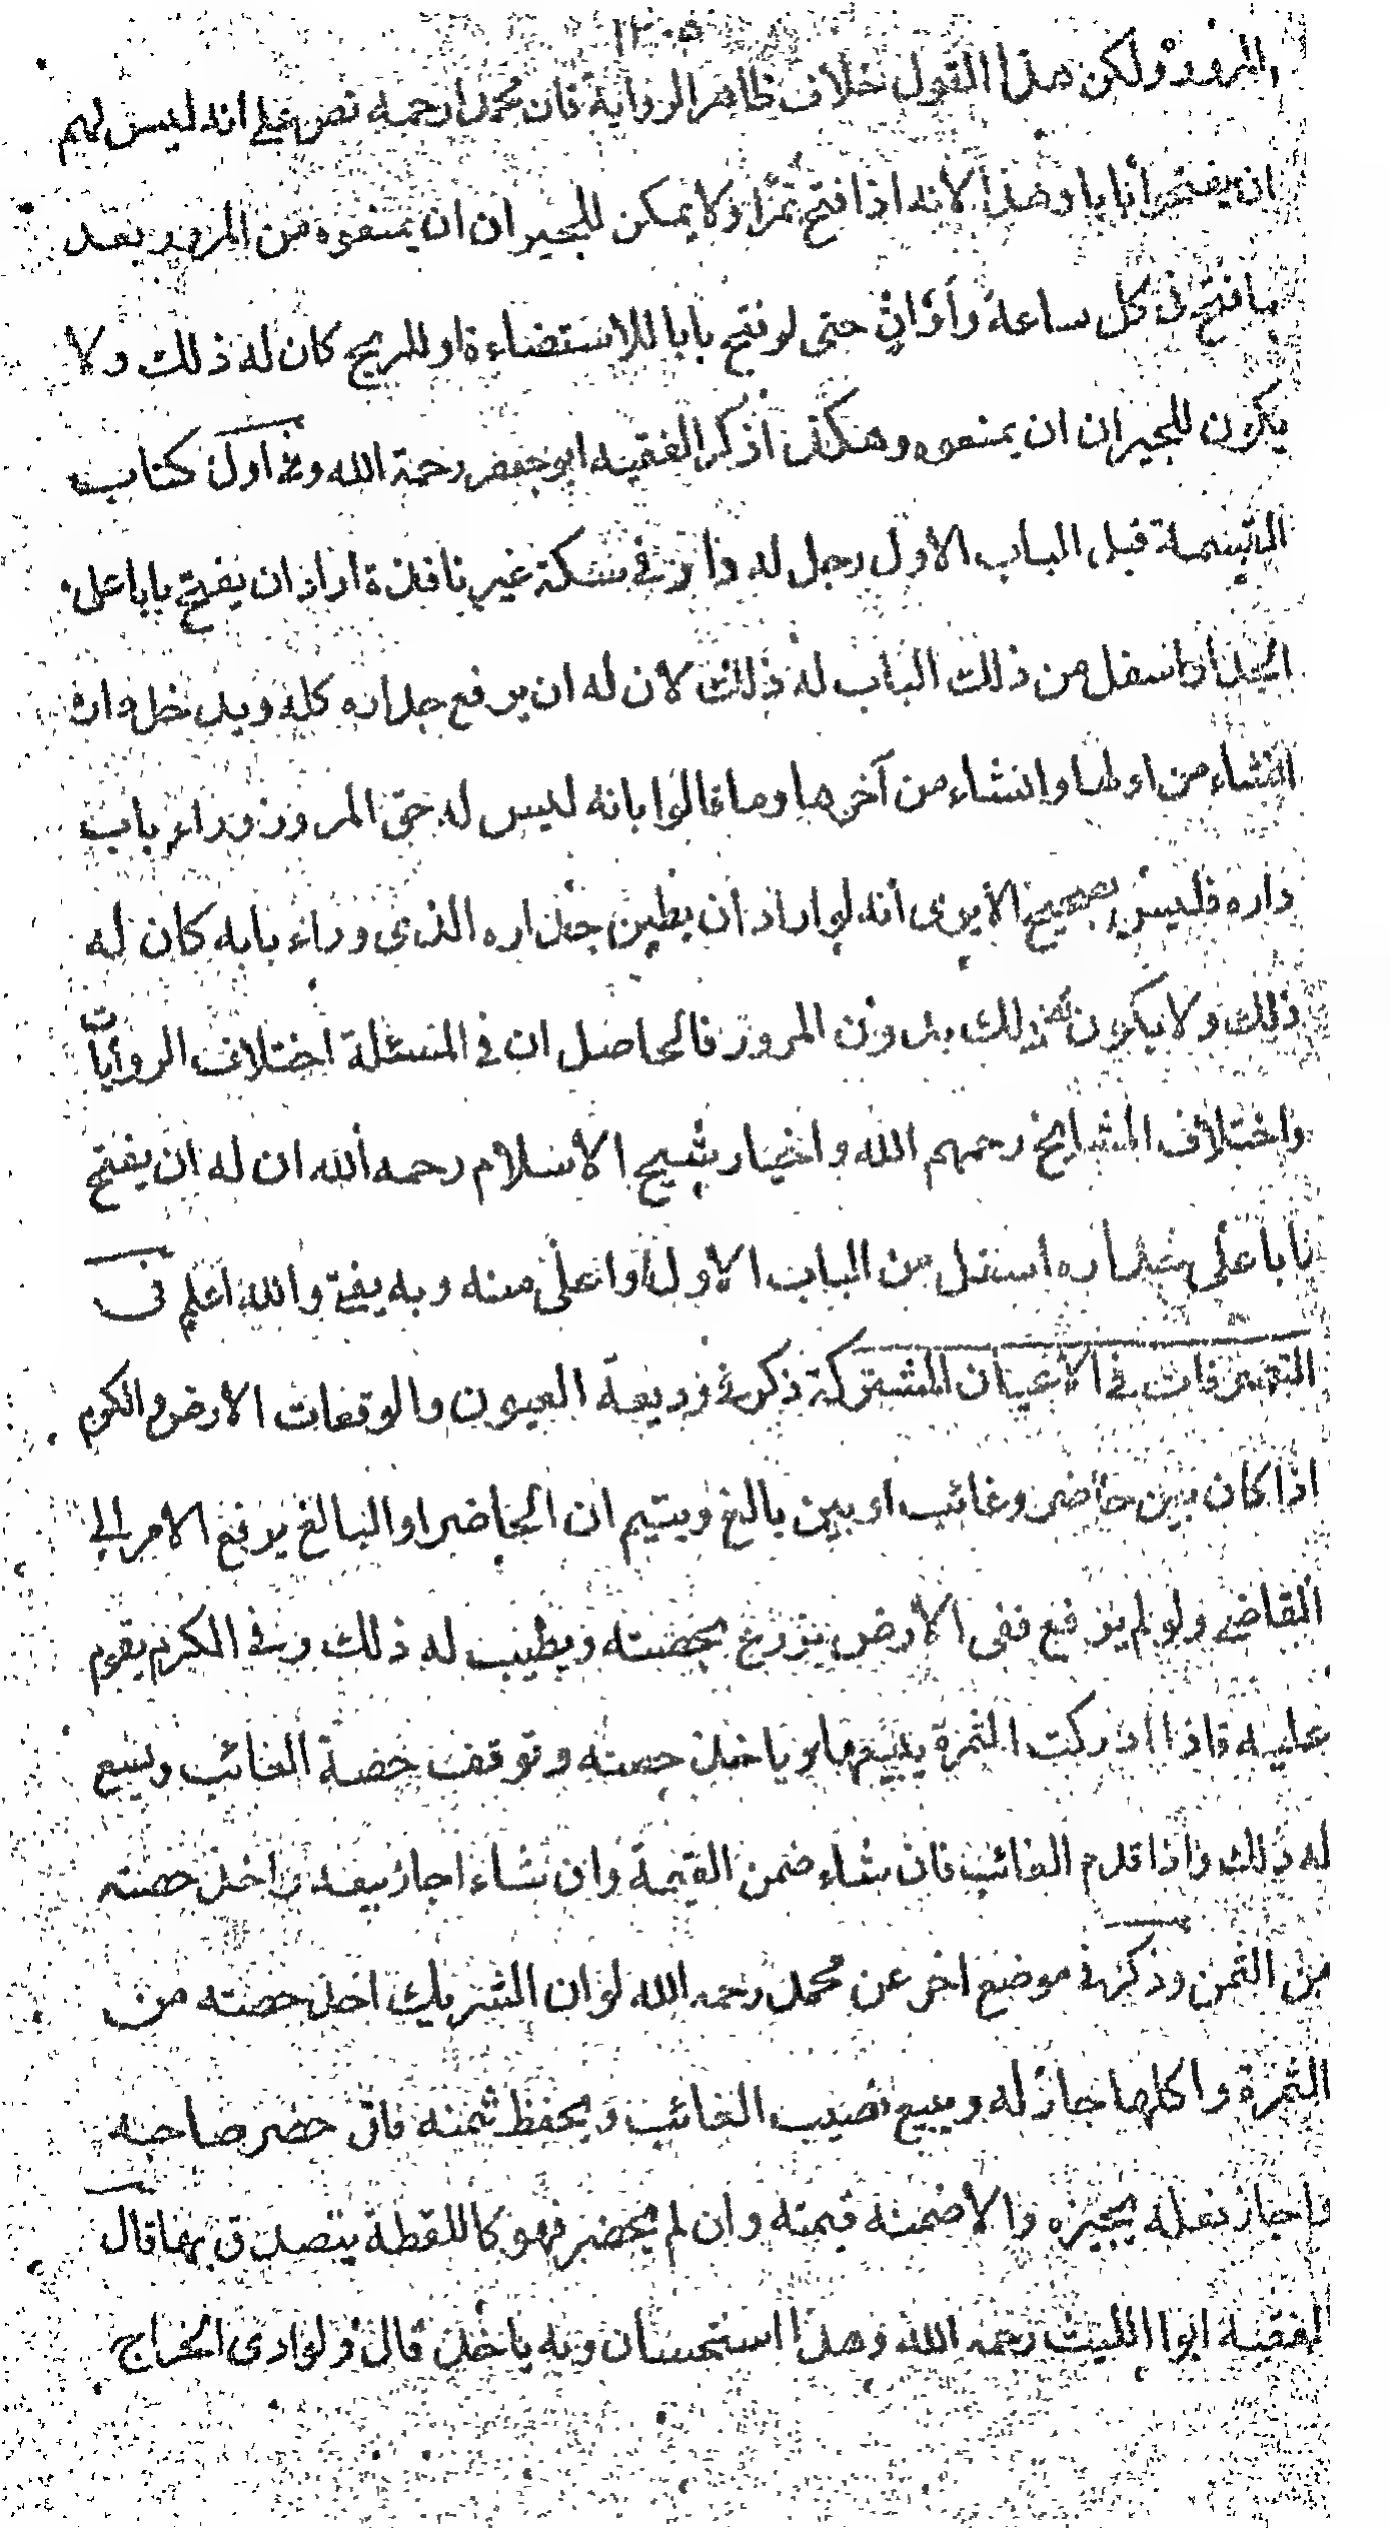 ١٢٠٥
المرور ولكن هذا القول خلاف ظاهر الرواية فان محمدا رحمه نص على انه ليس لهم
ان يفتحوا بابا وهذا لانه اذا فتح ممرا ولا يمكن للجيران ان يمنعوه من المرور بعد
ما فتح فى كل ساعة وأوان حتى لو فتح بابا للاستضاءة او للريح كان له ذلك ولا
يكون للجيران ان يمنعوه وهكذا ذكر الفقيه ابو جعفر رحمة الله وفى اول كتاب
القسمة قبل الباب الاول رجل له دار فى سكة غير نافذة اراد ان يفتح بابا على
اسفل من ذلك الباب له ذلك لان له ان يرفع جداره كله ويدخل داره
انشاء من اولها وانشاء من آخرها وما قالوا بانه ليس له حق المرور وراء باب
داره فليس بصحيح الا يرى انه لو اراد ان يطين جداره الذى وراء بابه كان له
ذلك ولا يكون له ذلك بدون المرور فالحاصل ان فى المسئلة اختلاف الروايات
واختلاف المشايخ رحمهم الله واختيار شيخ الاسلام رحمه الله ان له ان يفتح
بابا على جداره اسفل من الباب الاول او اعلى منه وبه يفتى والله اعلم فى
التصرفات فى الاعيان المشتركة ذكر فى وديعة العيون والوقعات الارض والكرم
اذا كان بين حاضر وغائب او بين بالغ ويتيم ان الحاضر او البالغ يرفع الامر الى
القاضى ولو لم يرفع ففى الارض يزرع بحصته ويطيب له ذلك وفى الكرم يقوم
عليه فاذا ادركت الثمرة يبيعها وياخذ حصته وتوقف حصة الغائب ويسع
له ذلك واذا قدم الغائب فان شاء ضمن القيمة وان شاء اجاز بيعه واخذ حصته
من الثمن وذكر فى موضع اخر عن محمد رحمه الله لو ان الشريك اخذ حصته من
الثمرة واكلها جاز له ويبيع نصيب الغائب ويحفظ ثمنه فان حضر صاحبه
واجاز فعله يجيزه والا ضمنه قيمته وان لم يحضر فهو كاللقطة يتصدق بها قال
الفقيه ابوا الليث رحمه الله وهذا استحسان وبه ياخذ قال ولو ادى الخراج